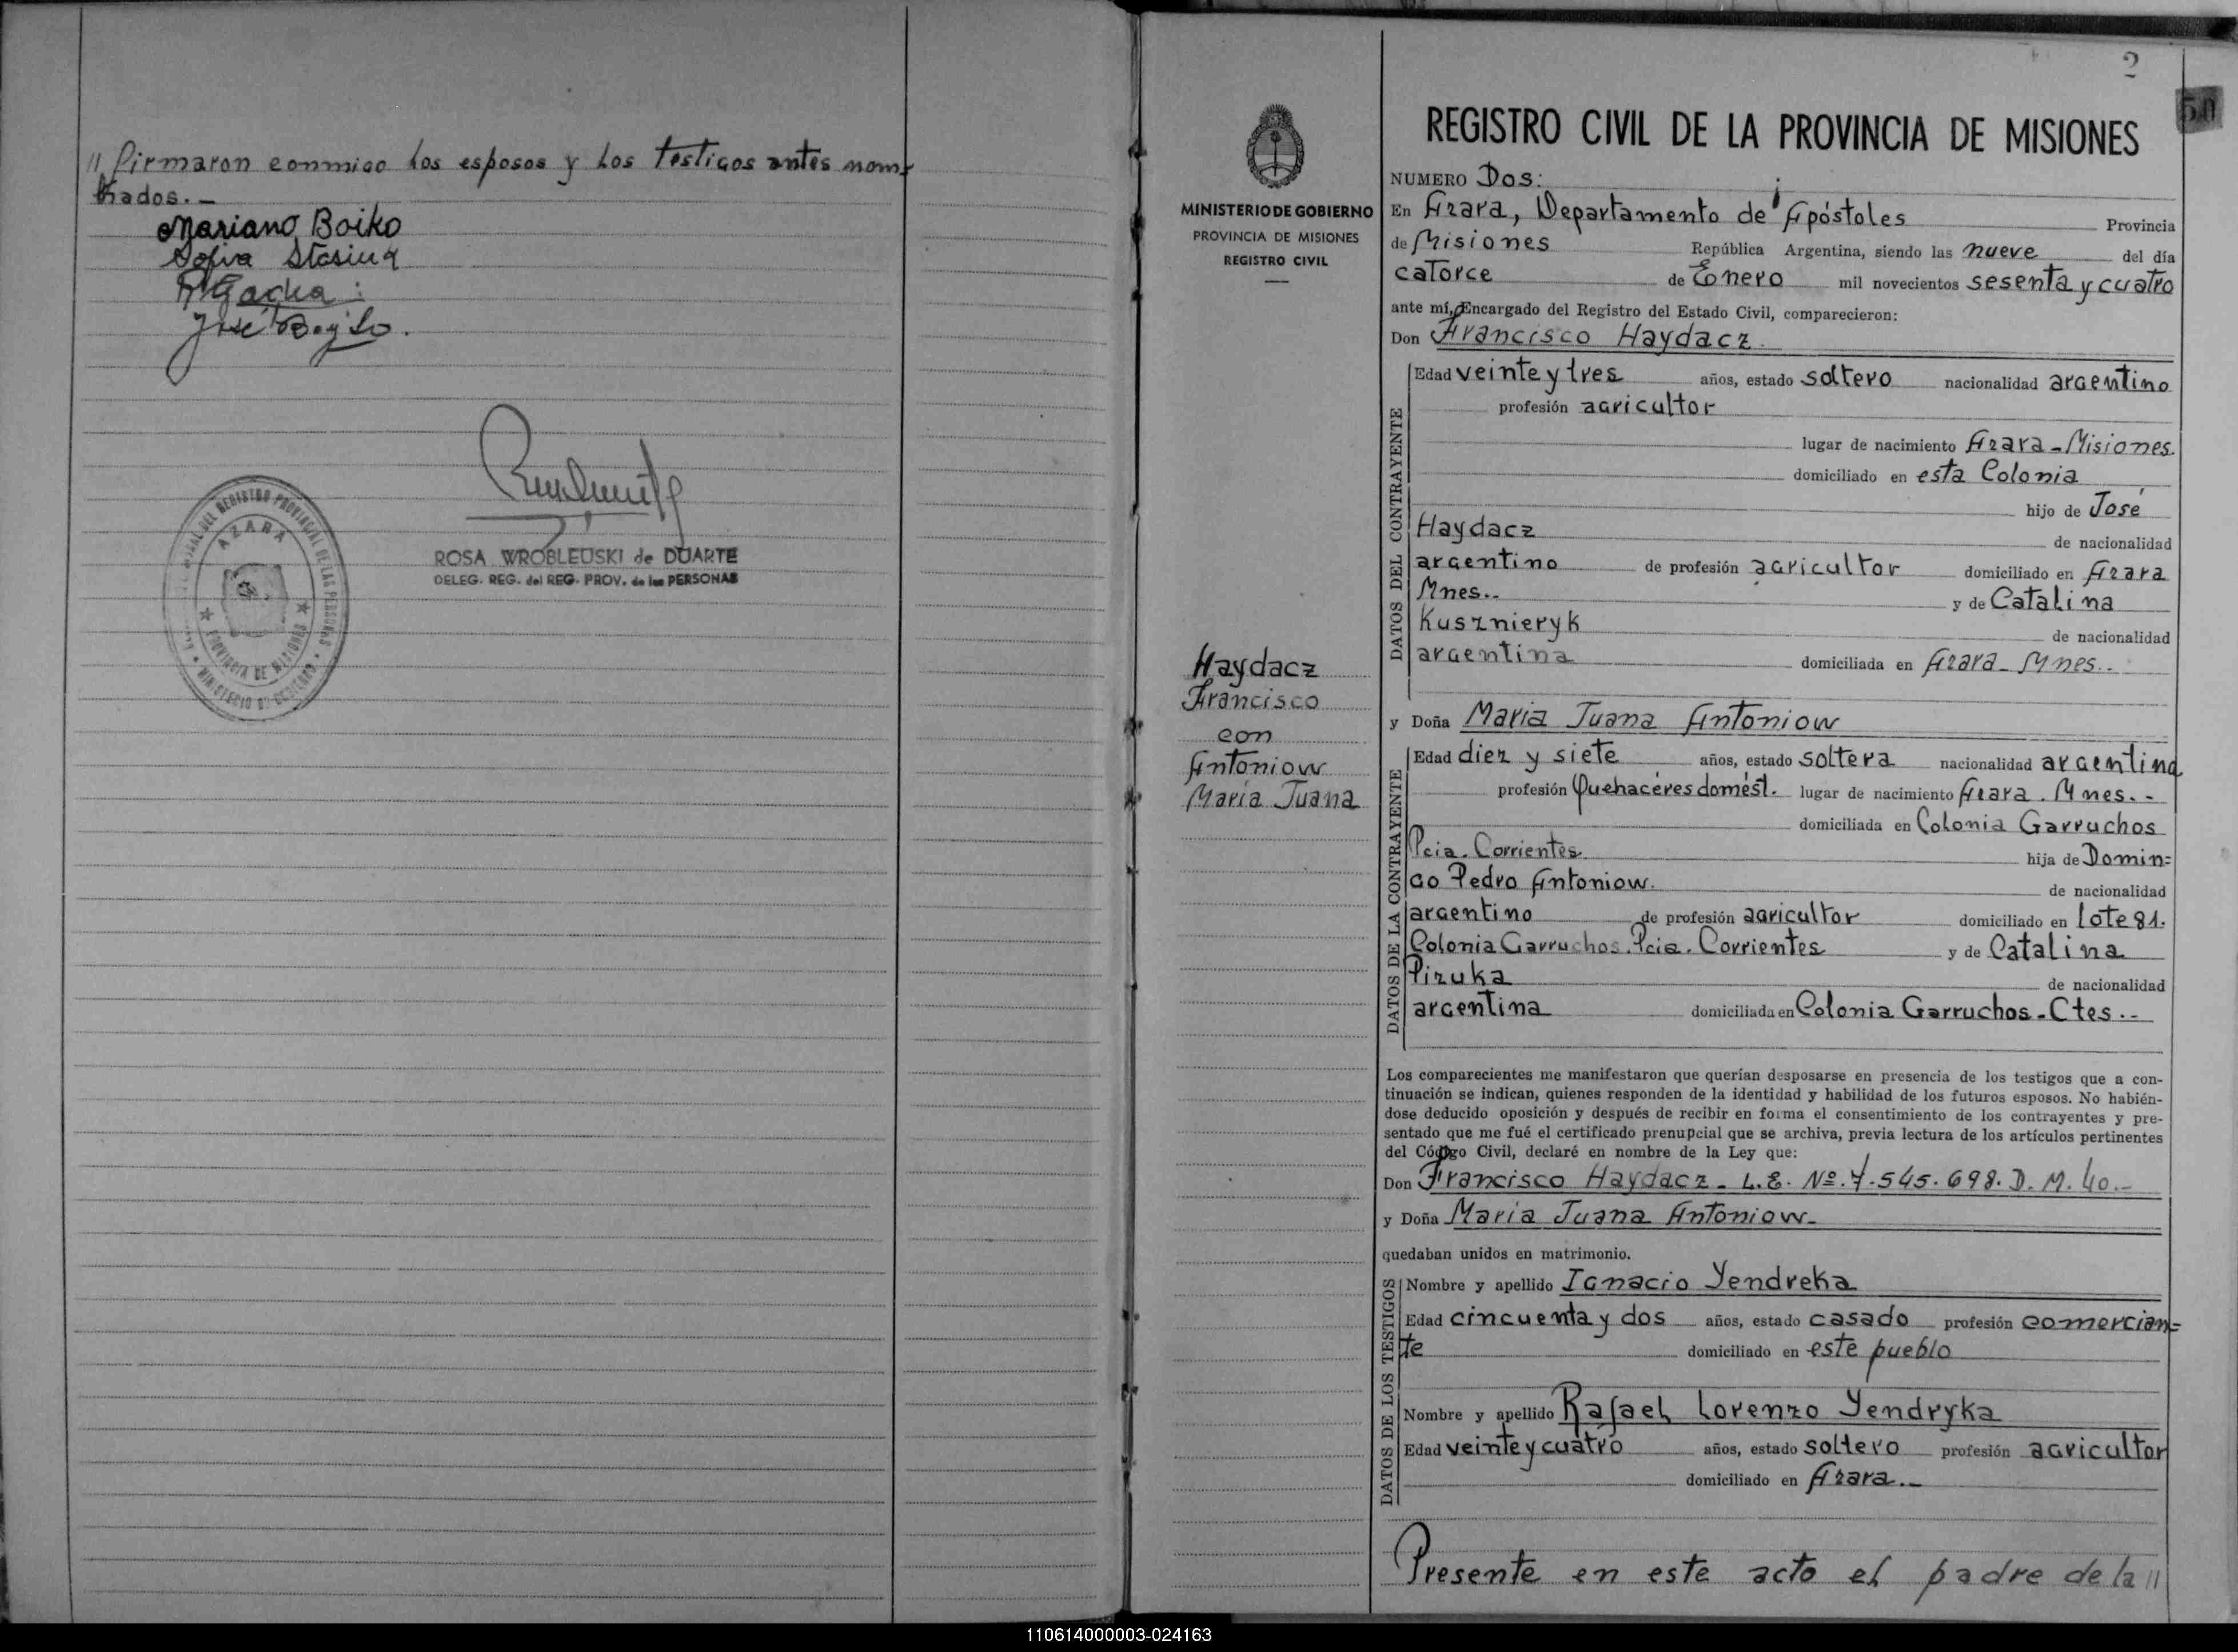 // firmaron conmigo los esposos y los testigos antes nom-
brados.-
Mariano Boiko
Sofia Stasiuk
José Boyko.
ROSA WROBLEUSKI de DUARTE
DELEG. REG. del REG. PROV. de las PERSONAS
AZARA
PROVINCIA DE MISIONES
2
50
MINISTERIO DE GOBIERNO
PROVINCIA DE MISIONES
REGISTRO CIVIL
Haydacz
Francisco
con
Antoniow
María Juana
REGISTRO CIVIL DE LA PROVINCIA DE MISIONES
NUMERO Dos:
En Azara, Departamento de Apóstoles Provincia
de Misiones República Argentina, siendo las nueve del día
catorce de Enero mil novecientos sesenta y cuatro
ante mí, Encargado del Registro del Estado Civil, comparecieron:
Don Francisco Haydacz.
DATOS DEL CONTRAYENTE
Edad veinte y tres años, estado soltero nacionalidad argentino
profesión agricultor
lugar de nacimiento Azara - Misiones.
domiciliado en esta Colonia
hijo de José
Haydacz de nacionalidad
argentino de profesión agricultor domiciliado en Azara
Mnes.. y de Catalina
Kusznieryk de nacionalidad
argentina domiciliada en Azara - Mnes..
y Doña Maria Juana Antoniow
DATOS DE LA CONTRAYENTE
Edad diez y siete años, estado soltera nacionalidad argentina
profesión Quehaceres domést. lugar de nacimiento Azara. Mnes.-
domiciliada en Colonia Garruchos
Pcia. Corrientes. hija de Domin=
go Pedro Antoniow. de nacionalidad
argentino de profesión agricultor domiciliado en Lote 81.
Colonia Garruchos. Pcia. Corrientes y de Catalina
Pizuka de nacionalidad
argentina domiciliada en Colonia Garruchos - Ctes..-
Los comparecientes me manifestaron que querían desposarse en presencia de los testigos que a con-
tinuación se indican, quienes responden de la identidad y habilidad de los futuros esposos. No habién-
dose deducido oposición y después de recibir en forma el consentimiento de los contrayentes y pre-
sentado que me fué el certificado prenupcial que se archiva, previa lectura de los artículos pertinentes
del Código Civil, declaré en nombre de la Ley que:
Don Francisco Haydacz - L.E. Nº. 7.545.698. D.M. 40.-
y Doña Maria Juana Antoniow-
quedaban unidos en matrimonio.
DATOS DE LOS TESTIGOS
Nombre y apellido Ignacio Yendreka
Edad cincuenta y dos años, estado casado profesión comercian=
te domiciliado en este pueblo
Nombre y apellido Rafael Lorenzo Yendryka
Edad veinte y cuatro años, estado soltero profesión agricultor
domiciliado en Azara..-
Presente en este acto el padre de la //
110614000003-024163